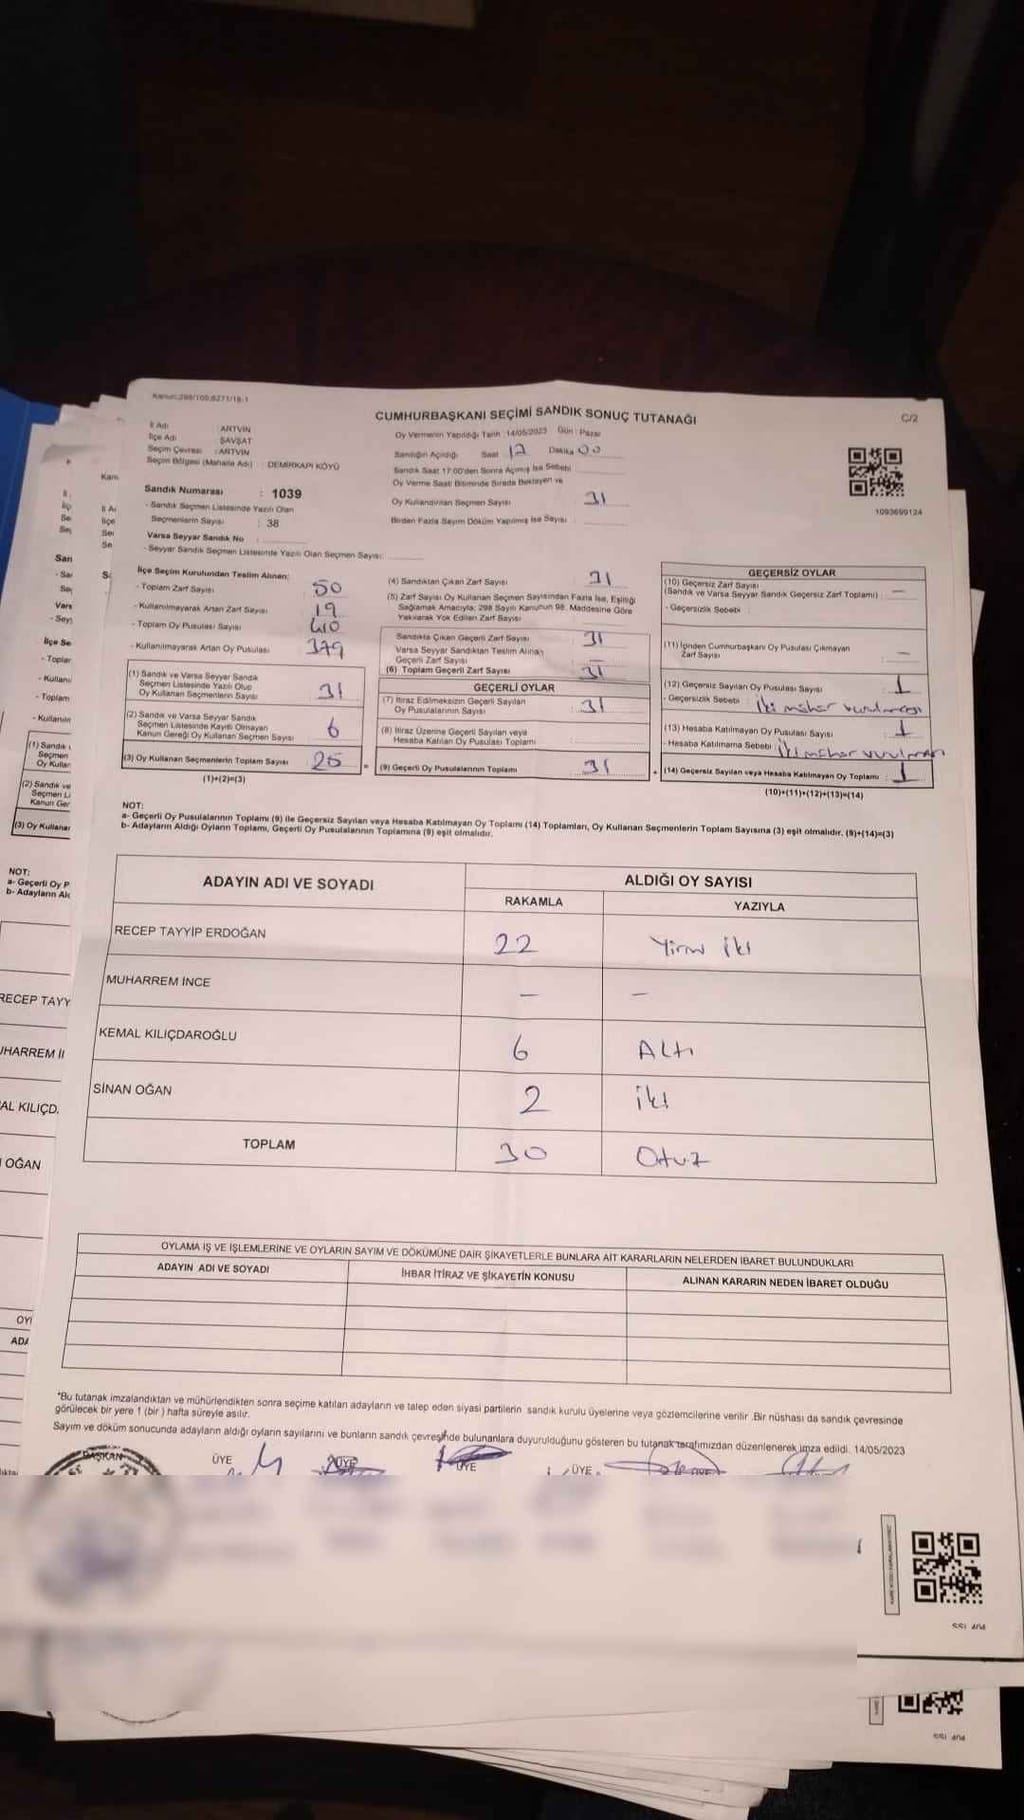 Kanun:298/109,6271/18-1
CUMHURBAŞKANI SEÇİMİ SANDIK SONUÇ TUTANAĞI
C/2
İl Adı : ARTVİN
İlçe Adı : ŞAVŞAT
Seçim Çevresi : ARTVİN
Seçim Bölgesi (Mahalle Adı) : DEMİRKAPI KÖYÜ
Sandık Numarası : 1039
- Sandık Seçmen Listesinde Yazılı Olan
Seçmenlerin Sayısı : 38
Varsa Seyyar Sandık No :
- Seyyar Sandık Seçmen Listesinde Yazılı Olan Seçmen Sayısı:
Oy Vermenin Yapıldığı Tarih :14/05/2023 Gün : Pazar
Sandığın Açıldığı Saat 17 Dakika 00
Sandık Saat 17:00'den Sonra Açılmış İse Sebebi :
Oy Verme Saati Bitiminde Sırada Bekleyen ve
Oy Kullandırılan Seçmen Sayısı : 31
Birden Fazla Sayım Döküm Yapılmış İse Sayısı :
1093699124
İlçe Seçim Kurulundan Teslim Alınan:
- Toplam Zarf Sayısı : 50
- Kullanılmayarak Artan Zarf Sayısı : 19
- Toplam Oy Pusulası Sayısı : 410
- Kullanılmayarak Artan Oy Pusulası : 379
(1) Sandık ve Varsa Seyyar Sandık
Seçmen Listesinde Yazılı Olup
Oy Kullanan Seçmenlerin Sayısı : 31
(2) Sandık ve Varsa Seyyar Sandık
Seçmen Listesinde Kayıtlı Olmayan
Kanun Gereği Oy Kullanan Seçmen Sayısı : 6
(3) Oy Kullanan Seçmenlerin Toplam Sayısı : 25
(1)+(2)=(3)
(4) Sandıktan Çıkan Zarf Sayısı : 31
(5) Zarf Sayısı Oy Kullanan Seçmen Sayısından Fazla İse, Eşitliği
Sağlamak Amacıyla; 298 Sayılı Kanunun 98. Maddesine Göre
Yakılarak Yok Edilen Zarf Sayısı :
Sandıkta Çıkan Geçerli Zarf Sayısı : 31
Varsa Seyyar Sandıktan Teslim Alınan
Geçerli Zarf Sayısı :
(6) Toplam Geçerli Zarf Sayısı : 31
GEÇERLİ OYLAR
(7) İtiraz Edilmeksizin Geçerli Sayılan
Oy Pusulalarının Sayısı : 31
(8) İtiraz Üzerine Geçerli Sayılan veya
Hesaba Katılan Oy Pusulası Toplamı :
(9) Geçerli Oy Pusulalarının Toplamı : 31
GEÇERSİZ OYLAR
(10) Geçersiz Zarf Sayısı
(Sandık ve Varsa Seyyar Sandık Geçersiz Zarf Toplamı) : —
- Geçersizlik Sebebi :
(11) İçinden Cumhurbaşkanı Oy Pusulası Çıkmayan
Zarf Sayısı : —
(12) Geçersiz Sayılan Oy Pusulası Sayısı : 1
- Geçersizlik Sebebi : İki mühür vurulması
(13) Hesaba Katılmayan Oy Pusulası Sayısı : 1
- Hesaba Katılmama Sebebi : İki mühür vurulması
(14) Geçersiz Sayılan veya Hesaba Katılmayan Oy Toplamı : 1
(10)+(11)+(12)+(13)=(14)
NOT:
a- Geçerli Oy Pusulalarının Toplamı (9) ile Geçersiz Sayılan veya Hesaba Katılmayan Oy Toplamı (14) Toplamları, Oy Kullanan Seçmenlerin Toplam Sayısına (3) eşit olmalıdır. (9)+(14)=(3)
b- Adayların Aldığı Oyların Toplamı, Geçerli Oy Pusulalarının Toplamına (9) eşit olmalıdır.
ADAYIN ADI VE SOYADI
ALDIĞI OY SAYISI
RAKAMLA YAZIYLA
RECEP TAYYİP ERDOĞAN 22 Yirmi iki
MUHARREM İNCE — —
KEMAL KILIÇDAROĞLU 6 Altı
SİNAN OĞAN 2 iki
TOPLAM 30 Otuz
OYLAMA İŞ VE İŞLEMLERİNE VE OYLARIN SAYIM VE DÖKÜMÜNE DAİR ŞİKAYETLERLE BUNLARA AİT KARARLARIN NELERDEN İBARET BULUNDUKLARI
ADAYIN ADI VE SOYADI İHBAR İTİRAZ VE ŞİKAYETİN KONUSU ALINAN KARARIN NEDEN İBARET OLDUĞU
*Bu tutanak imzalandıktan ve mühürlendikten sonra seçime katılan adayların ve talep eden siyasi partilerin sandık kurulu üyelerine veya gözlemcilerine verilir .Bir nüshası da sandık çevresinde
görülecek bir yere 1 (bir ) hafta süreyle asılır.
Sayım ve döküm sonucunda adayların aldığı oyların sayılarını ve bunların sandık çevresinde bulunanlara duyurulduğunu gösteren bu tutanak tarafımızdan düzenlenerek imza edildi. 14/05/2023
BAŞKAN ÜYE ÜYE ÜYE ÜYE ÜYE